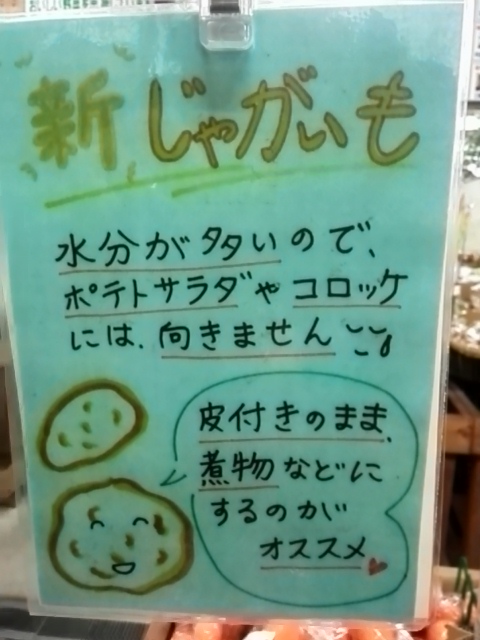 新じゃがいも
水分が多いので、
ポテトサラダやコロッケ
には、向きません
皮付きのまま、
煮物などに
するのがが
オススメ